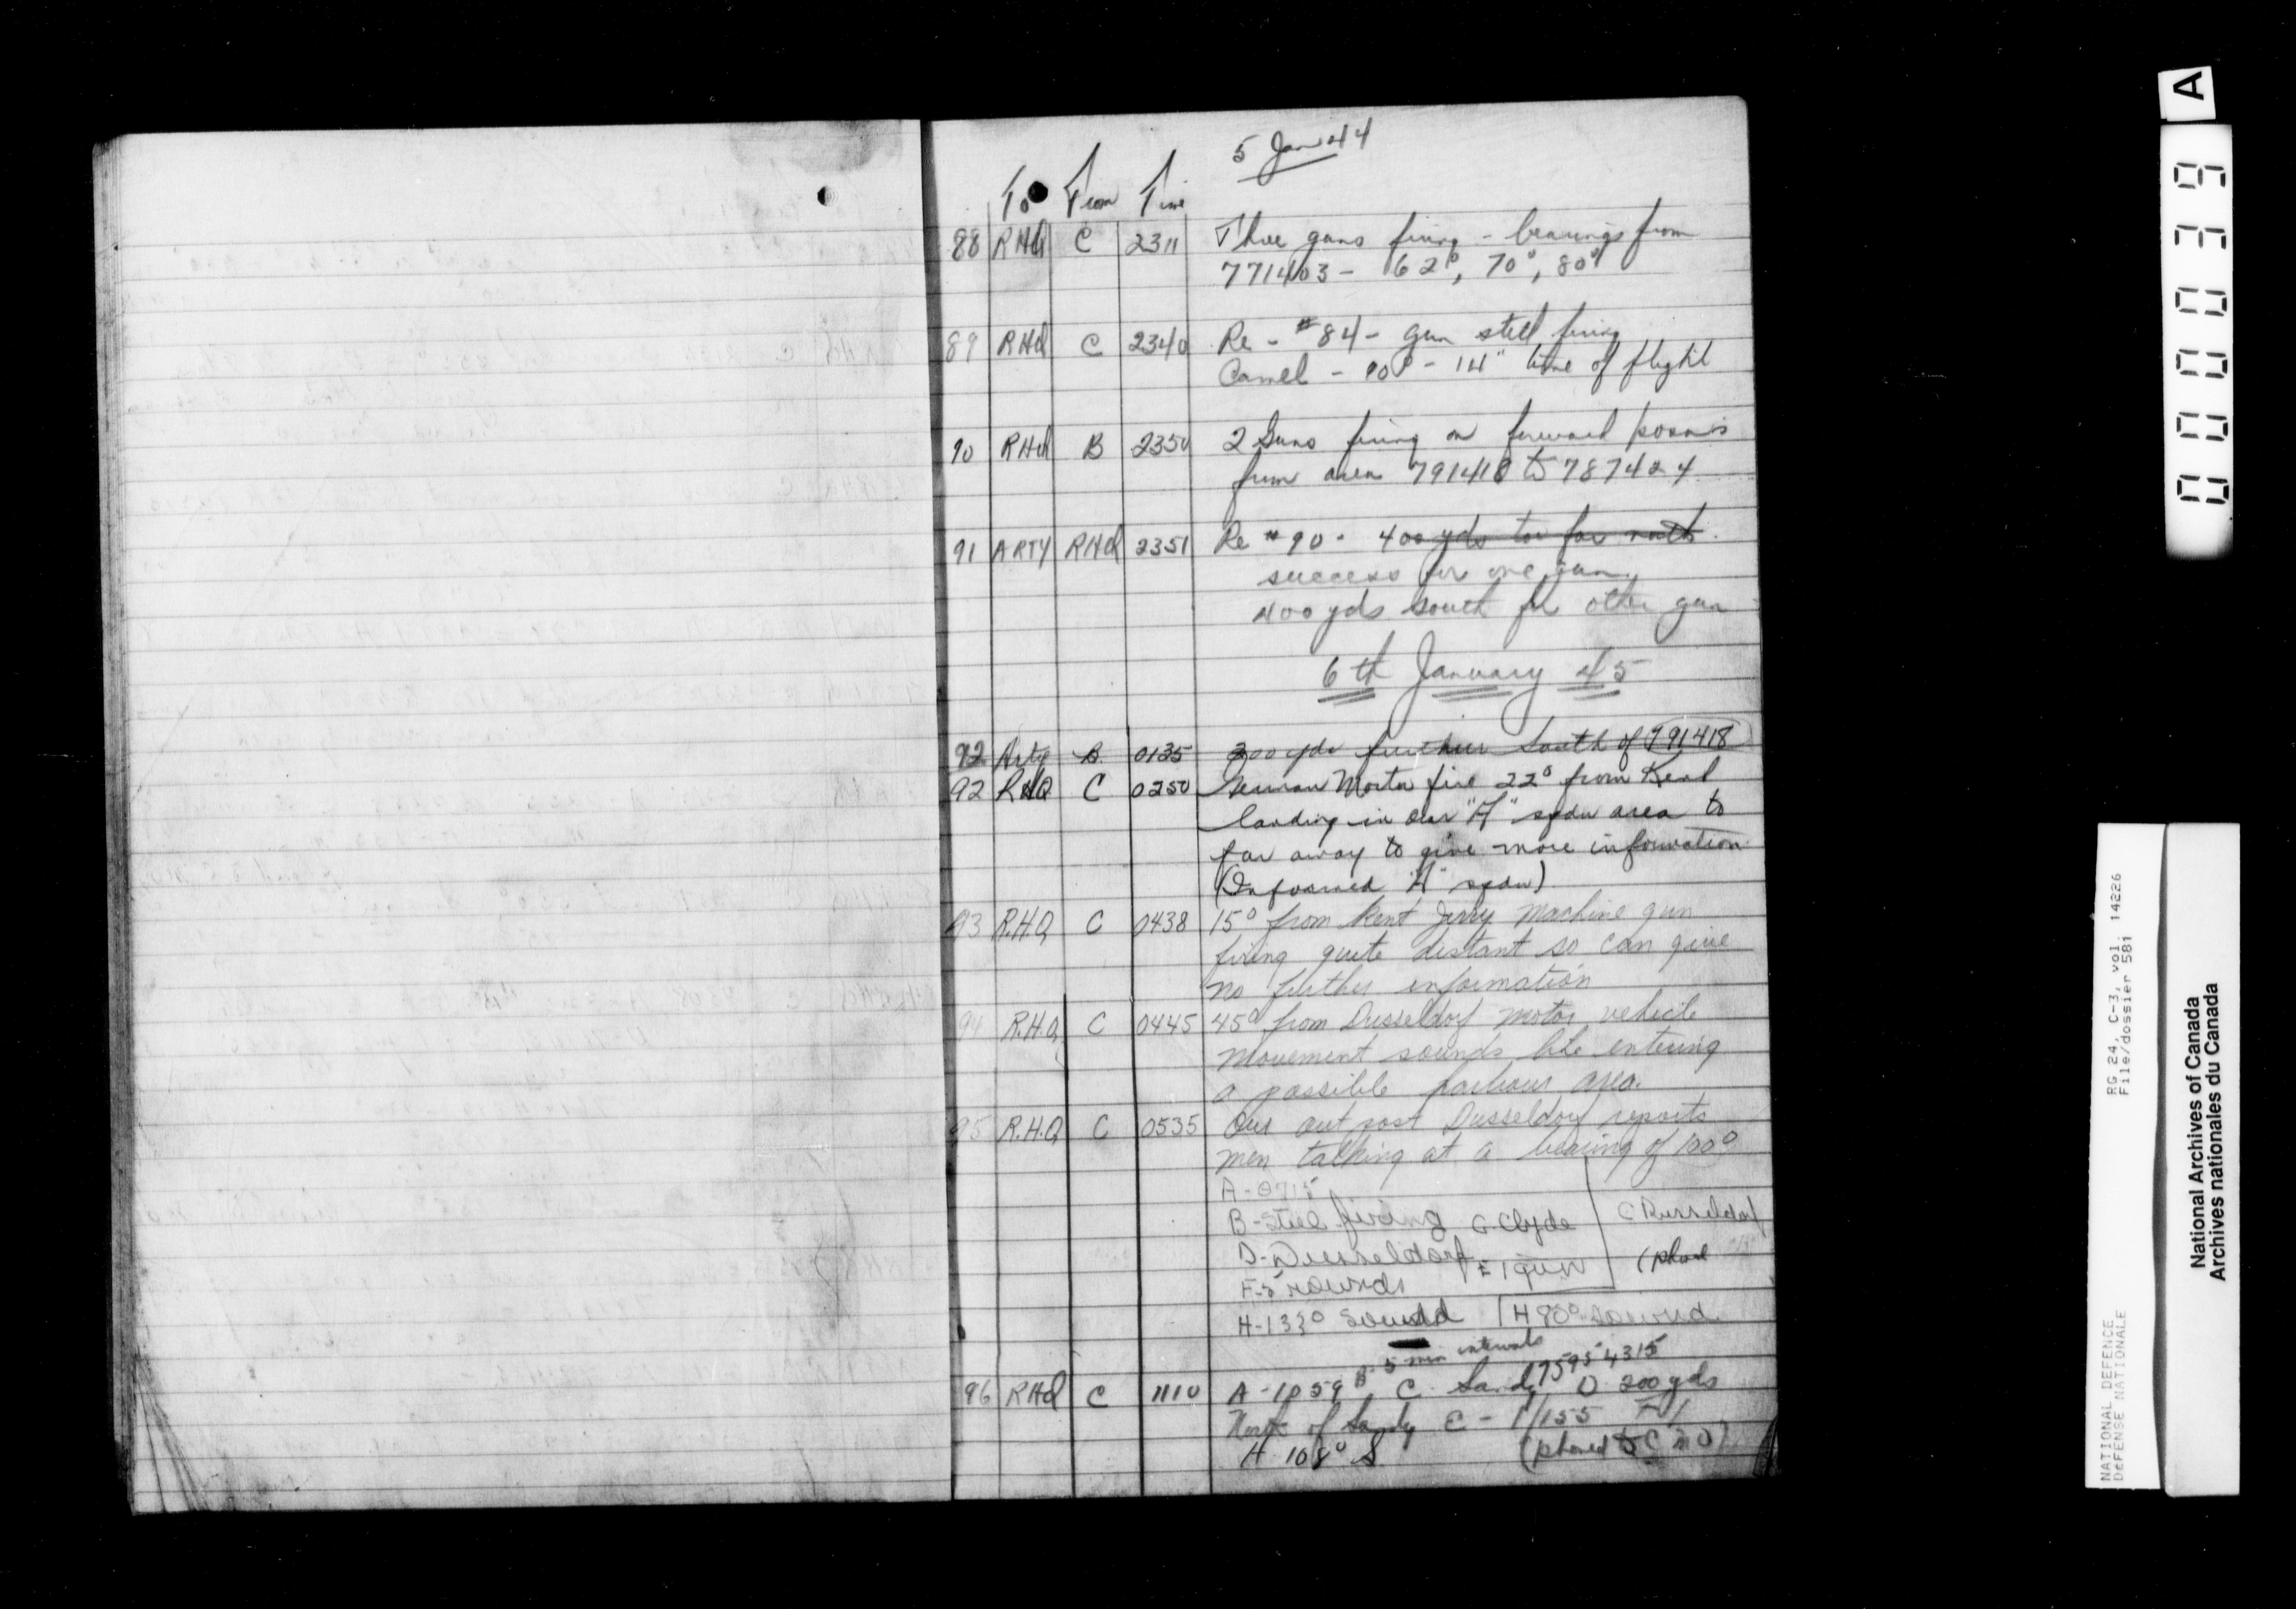 5 Jan 44
To From Time
88 RHQ C 2311 Three guns firing - bearings from
771403 - 62°, 70°, 80°
89 RHQ C 2340 Re - #84 - gun still firing
Camel - 90° - 14" time of flight
90 RHQ B 2350 2 Guns firing on forward posns
from area 791418 to 787424
91 ARTY RHQ 2351 Re #90 - 400 yds too far north.
success for one gun,
400 yds south for other gun
6th January 45
92 Arty B. 0135 300 yds further South of 791418
92 RHQ C 0250 German Mortar fire 22° from Kent
landing in our "A" sqdn area to
far away to give more information
(Informed "A" sqdn)
93 R.H.Q. C 0438 15° from Kent Jerry Machine gun
firing quite distant so can give
no further information
94 R.H.Q. C 0445 45° from Dusseldorf motor vehicle
movement sounds like entering
a possible harbour area.
95 R.H.Q C 0535 Our out post Dusseldorf reports
men talking at a bearing of 100°
A-0715
B-Still firing C-Clyde C Dusseldorf
D-Dusseldorf E 1 gun (phone
F-5 rounds
H-133° Sound H 80° sound
B 5 min intervals
96 RHQ C 1110 A-1059 C Sandy 75954315 D 200 yds
North of Sandy E - 1/155 F 1
H 108° S (phoned to C in O)
A
000039
RG 24, C-3, vol. 14226
File/dossier 581
NATIONAL DEFENCE
DéFENSE NATIONALE
National Archives of Canada
Archives nationales du Canada